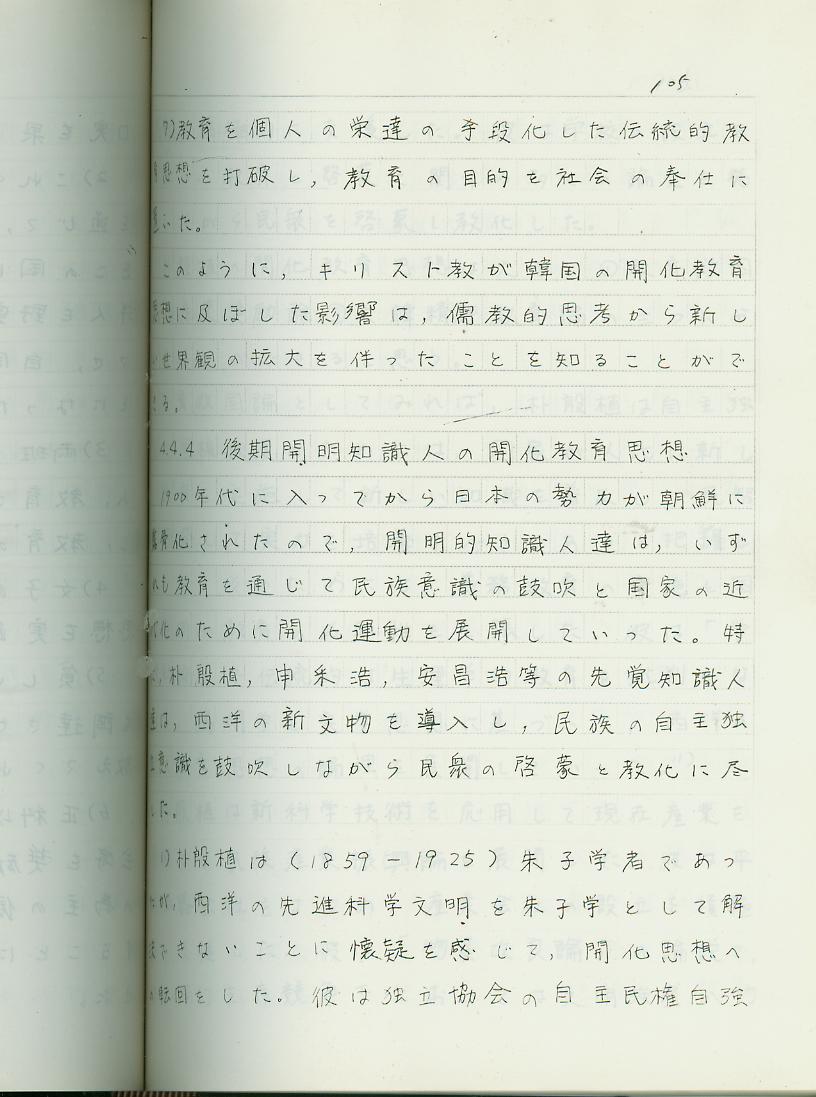 105
7)教育を個人の栄達の手段化した伝統的教
育思想を打破し,教育の目的を社会の奉仕に
置いた。
このように,キリスト教が韓国の開化教育
思想に及ぼした影響は,儒教的思考から新し
い世界観の拡大を伴ったことを知ることがで
きる。
4.4.4 後期開明知識人の開化教育思想
1900年代に入ってから日本の勢力が朝鮮に
露骨化されたので,開明的知識人達は,いず
れも教育を通じて民族意識の鼓吹と国家の近
代化のために開化運動を展開していった。特
に,朴殷植,申采浩,安昌浩等の先覚知識人
達は,西洋の新文物を導入し,民族の自主独
立意識を鼓吹しながら民衆の啓蒙と教化に尽
した。
1)朴殷植は(1859-1925)朱子学者であっ
たが,西洋の先進科学文明を朱子学として解
決できないことに懐疑を感じて,開化思想へ
の転回をした。彼は独立協会の自主民権自強